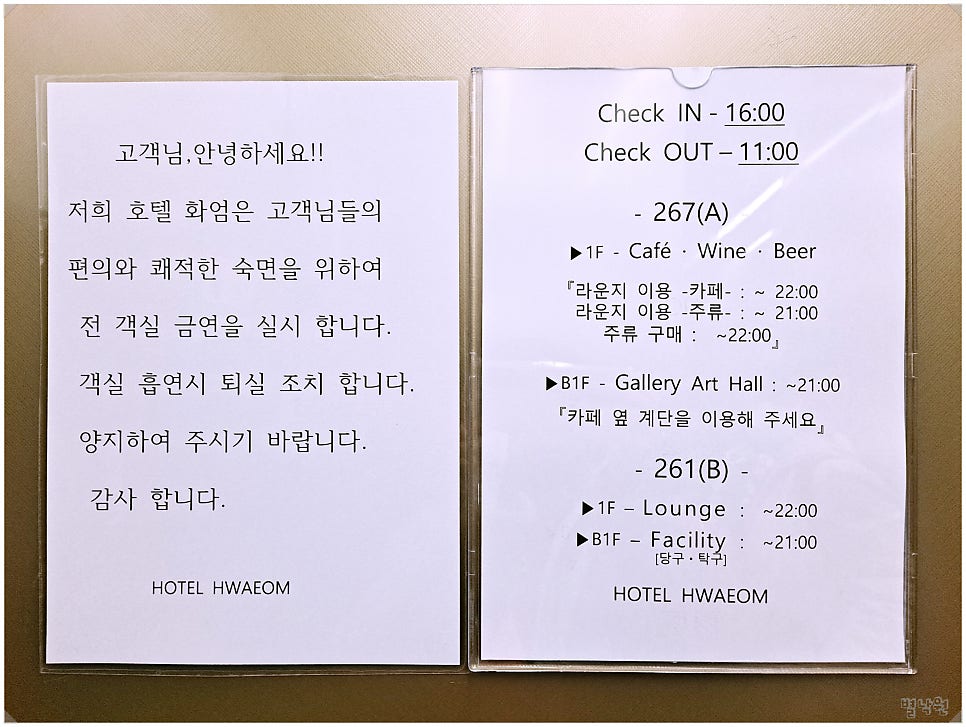 고객님,안녕하세요!!
저희 호텔 화엄은 고객님들의
편의와 쾌적한 숙면을 위하여
전 객실 금연을 실시 합니다.
객실 흡연시 퇴실 조치 합니다.
양지하여 주시기 바랍니다.
감사 합니다.
HOTEL HWAEOM
Check IN - 16:00
Check OUT – 11:00
- 267(A)
▶1F - Café · Wine · Beer
『라운지 이용 -카페- : ~ 22:00
라운지 이용 -주류- : ~ 21:00
주류 구매 : ~22:00』
▶B1F - Gallery Art Hall : ~21:00
『카페 옆 계단을 이용해 주세요』
- 261(B) -
▶1F – Lounge : ~22:00
▶B1F – Facility : ~21:00
[당구·탁구]
HOTEL HWAEOM
별낙원